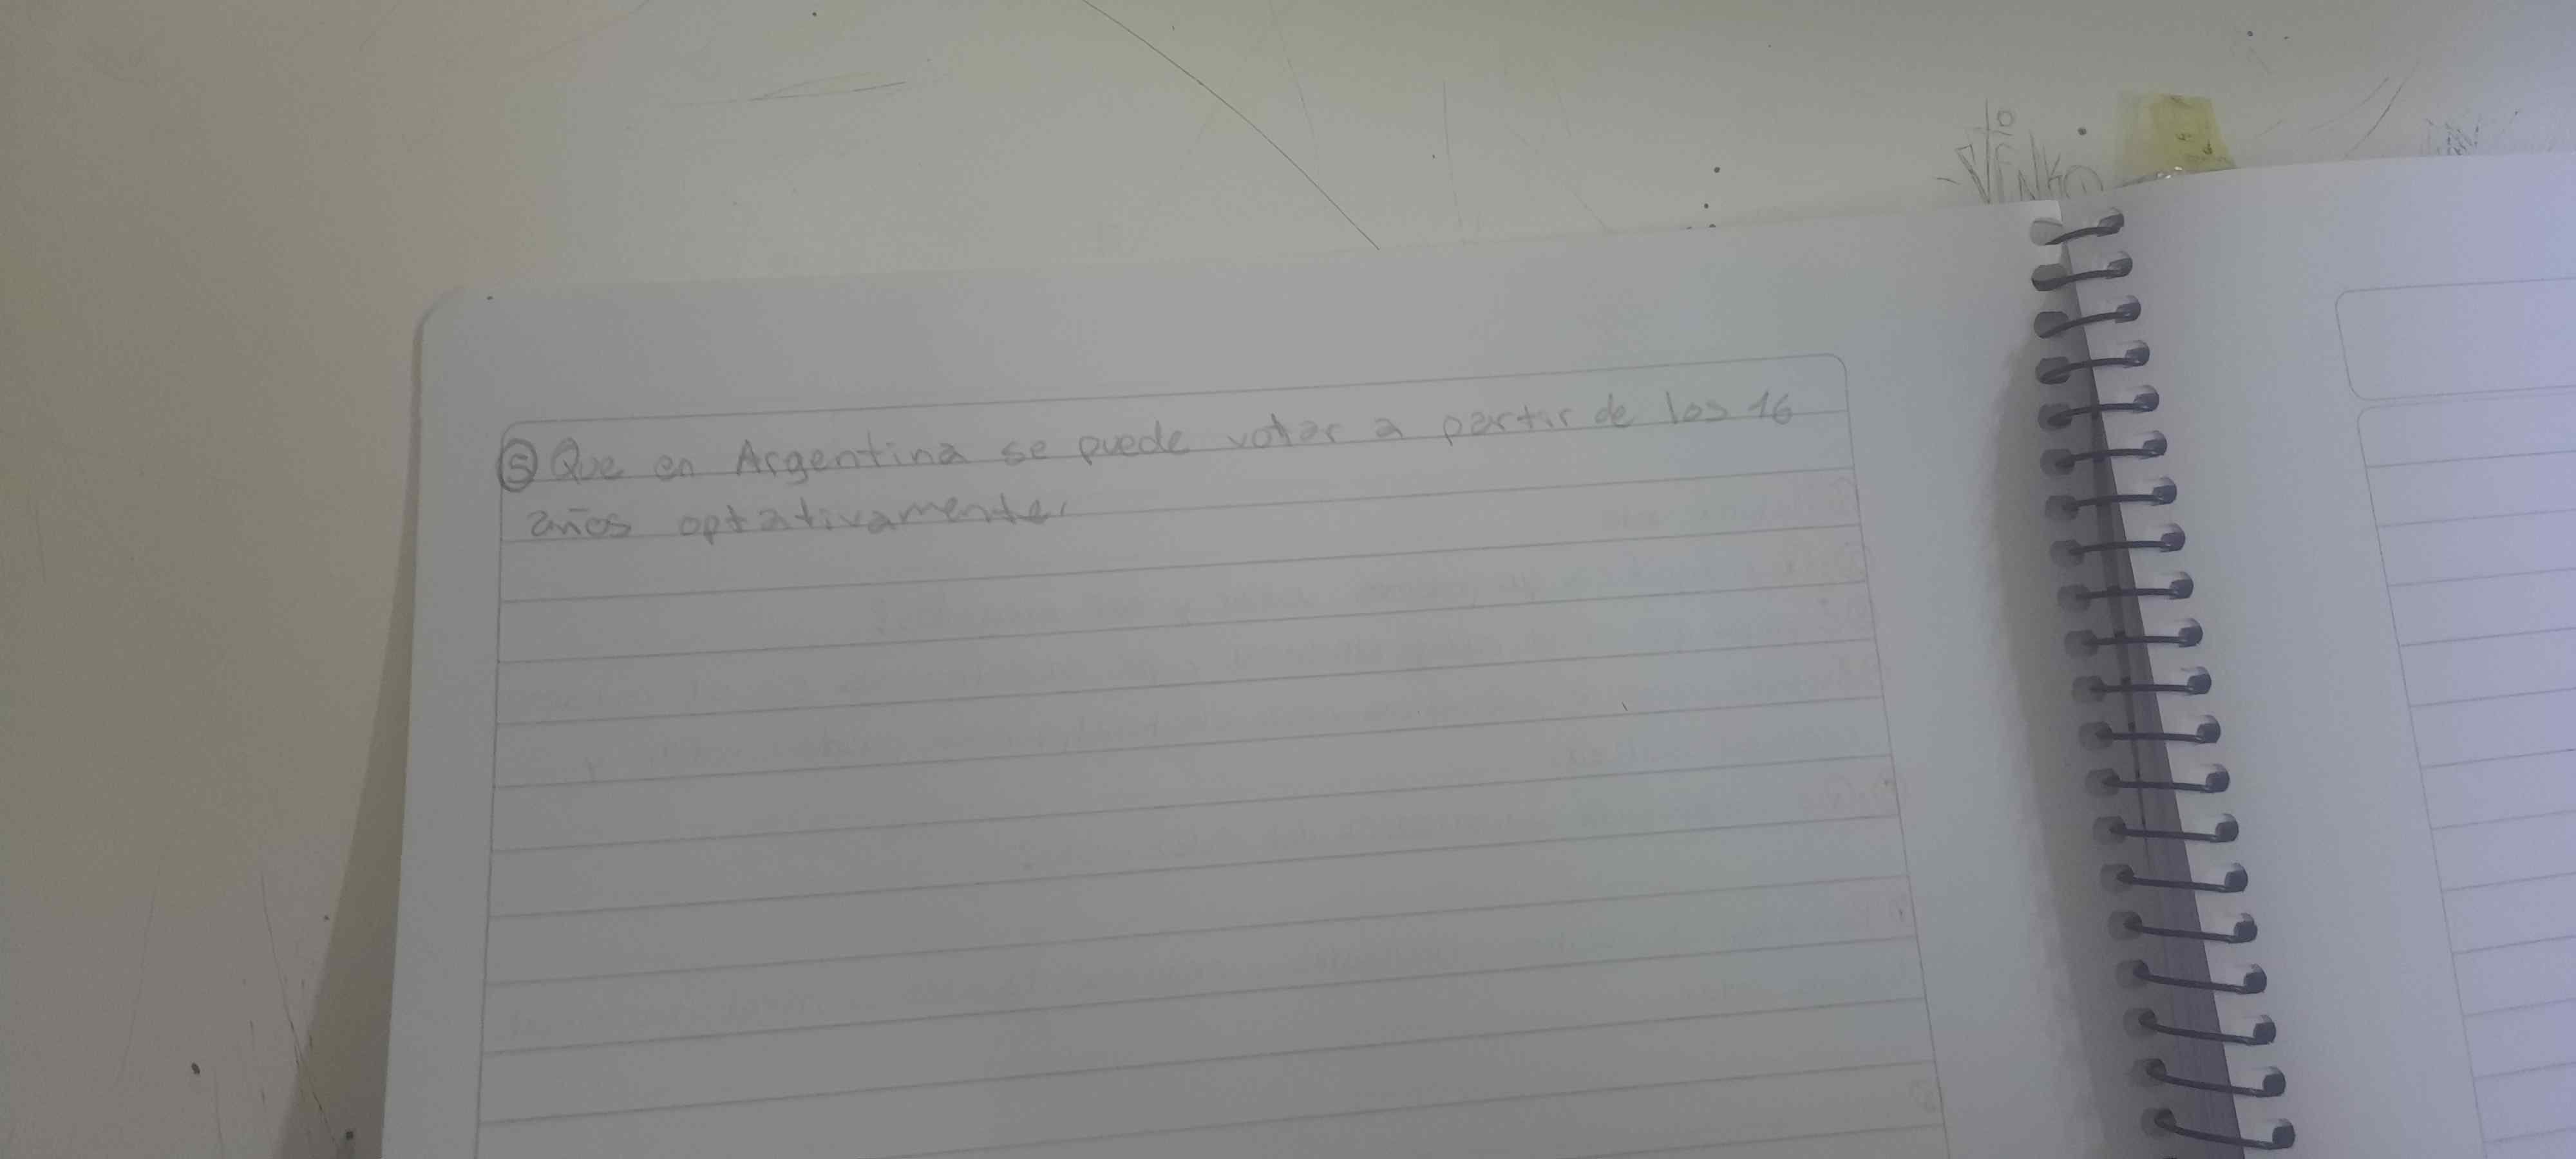 ⑤ Que en Argentina se puede votar a partir de los 16
años optativamente.